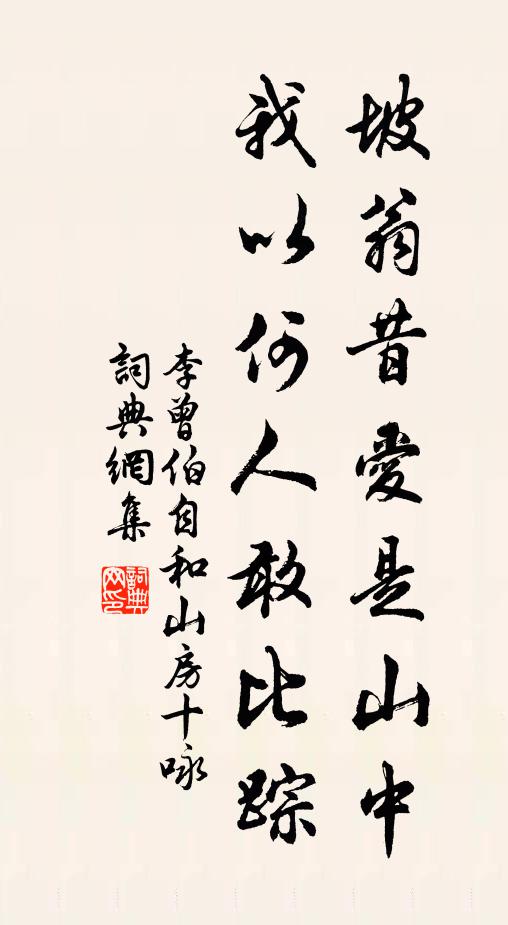 坡翁昔愛是山中
我以何人敢比踪
李曾伯自和山房十咏
詞典網集
詞典網印